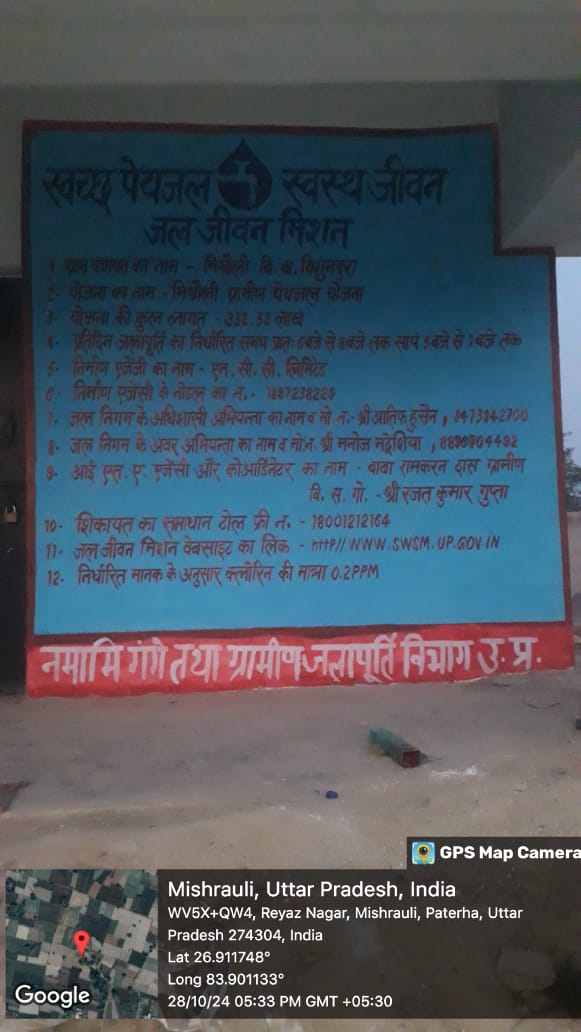 स्वच्छ पेयजल स्वस्थ जीवन
जल जीवन मिशन
1 ग्राम पंचायत का नाम - मिश्रौली वि. ख. विशुनपुरा
2- योजना का नाम - मिश्रौली ग्रामीण पेयजल योजना
3- योजना की कुल लागत - 332.52 लाख
4- प्रतिदिन जलापूर्ति का निर्धारित समय प्रातः 6 बजे से 8 बजे तक सायं 5 बजे से 7 बजे तक
5- निर्माण एजेंजी का नाम - एन. सी. सी. लिमिटेड
6- निर्माण एजेंसी के नोडल का न.-
7- जल निगम के अधिशासी अभियन्ता का नाम व मो. न.- श्री आतिफ हुसैन, 9473942700
8- जल निगम के अवर अभियन्ता का नाम व मो.न. श्री मनोज मद्देशिया,
9- आई एस. ए. एजेंसी और कोआर्डिनेटर का नाम - बाबा रामकरन दास ग्रामीण
वि. स. गो. - श्री रजत कुमार गुप्ता
10- शिकायत का समाधान टोल फ्री न. - 18001212164
11- जल जीवन मिशन वेबसाइट का लिंक - http// WWW.SWSM.UP.GOV.IN
12- निर्धारित मानक के अनुसार क्लोरिन की मात्रा 0.2PPM
नमामि गंगे तथा ग्रामीण जलापूर्ति विभाग उ. प्र.
GPS Map Camera
Mishrauli, Uttar Pradesh, India
WV5X+QW4, Reyaz Nagar, Mishrauli, Paterha, Uttar
Pradesh 274304, India
Lat 26.911748°
Long 83.901133°
28/10/24 05:33 PM GMT +05:30
Google